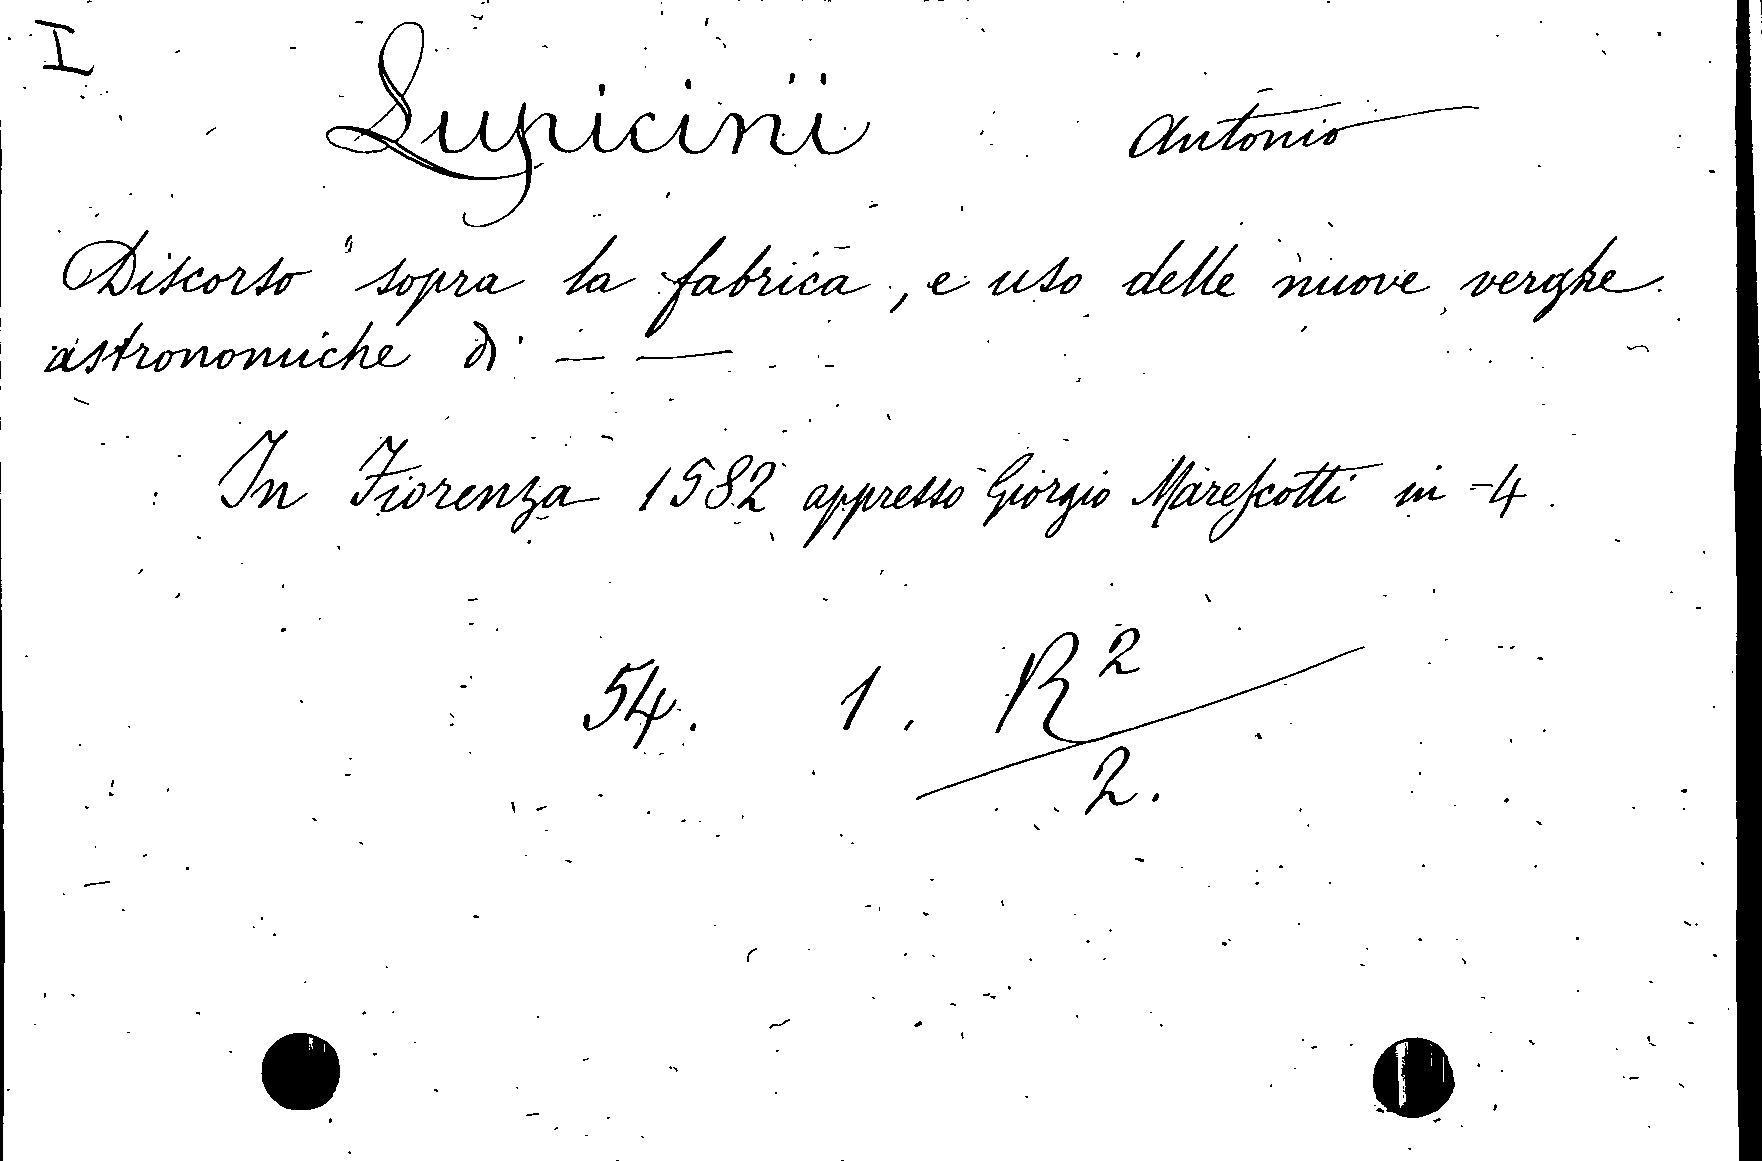 I
Lupicini Antonio
Discorso sopra la fabrica, e uso delle nuove verghe
astronomiche di — —
In Fiorenza 1582 appresso Giorgio Marescotti in -4
54. 1. R 2
2.